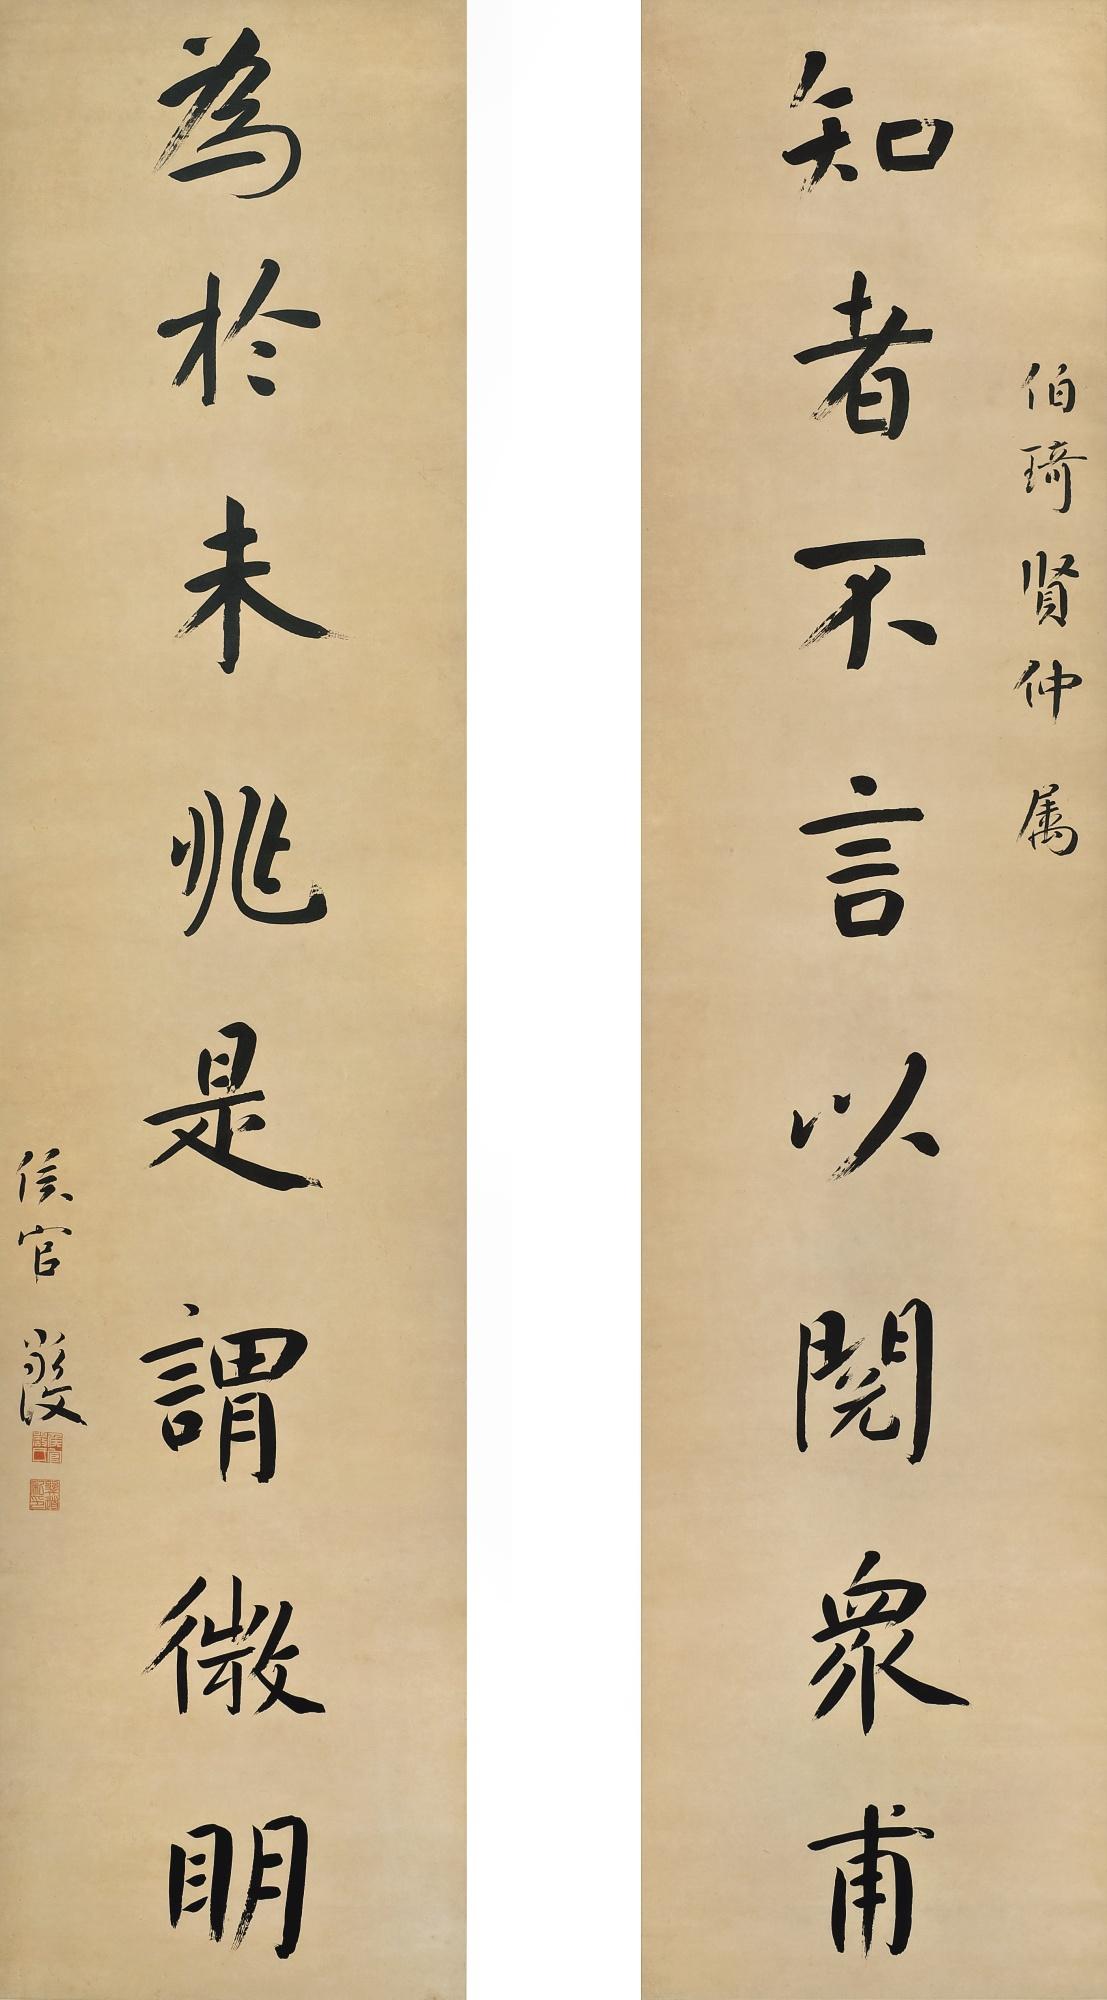 伯琦賢仲属
知者不言以閱衆甫
為於未兆是謂微明
侯官嚴復